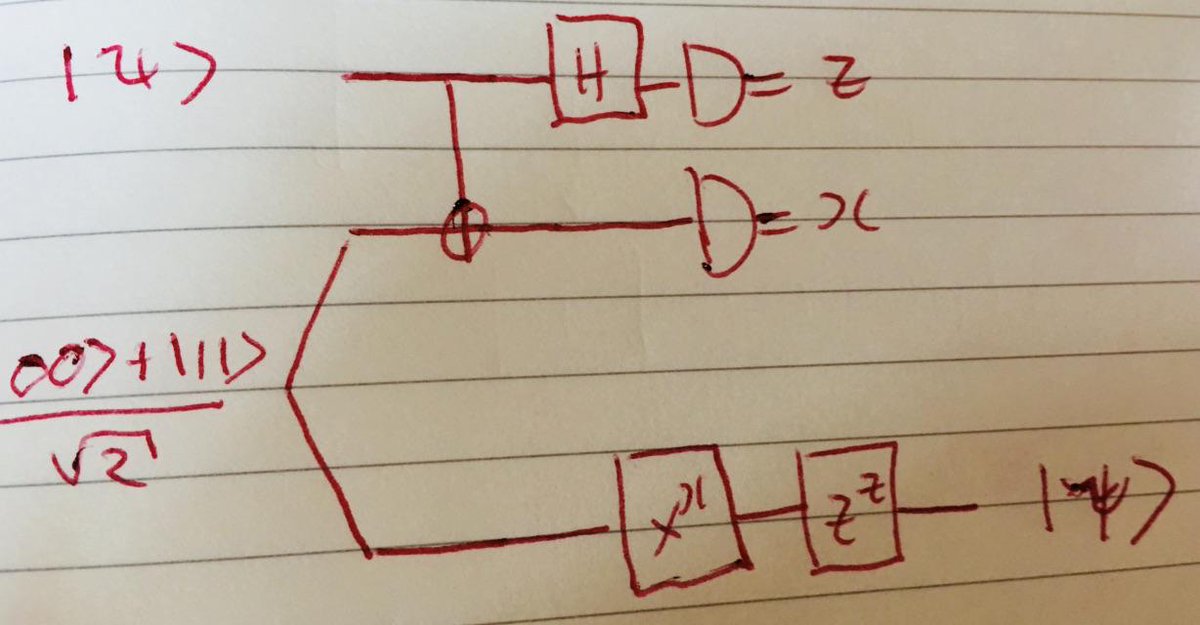 |ψ⟩ H = z
= x
00⟩+|11⟩
√2
X^x Z^z |ψ⟩